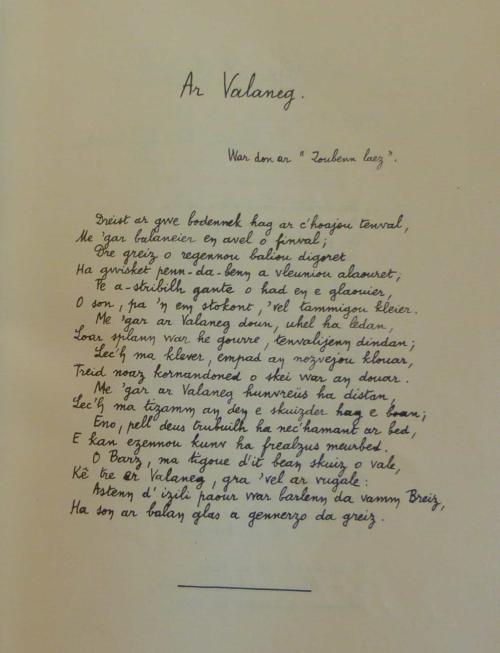 Ar Valaneg.
War don ar " Zoubenn laez ".
Dreist ar gwe bodennek hag ar c'hoajou tenval,
Me 'gar balaneier en avel o finval;
Dre greiz o regennou baliou digoret
Ha gwisket penn-da-benn a vleuniou alaouret;
Pe a-stribilh gante o had en e glaouier,
O son, pa 'n em stokont, 'vel tammigou kleier.
Me 'gar ar Valaneg doun, uhel ha ledan,
Loar splann war he gourre, tenvalijenn dindan;
Lec'h ma klever, empad an nozvejou klouar,
Treid noaz kornandoned o skei war an douar.
Me 'gar ar Valaneg hunvreüs ha distan,
Lec'h ma tizamm an den e skuizder hag e boan;
Eno, pell deus trubuilh ha nec'hamant ar bed,
E kan ezennou kunv ha frealzus meurbed.
O Barz, ma tigoue d'it bean skuiz o vale,
Kê tre ar Valaneg, gra 'vel ar vugale:
Astenn d'izili paour war barlenn da vamm Breiz,
Ha son ar balan glas a gennerzo da greiz.